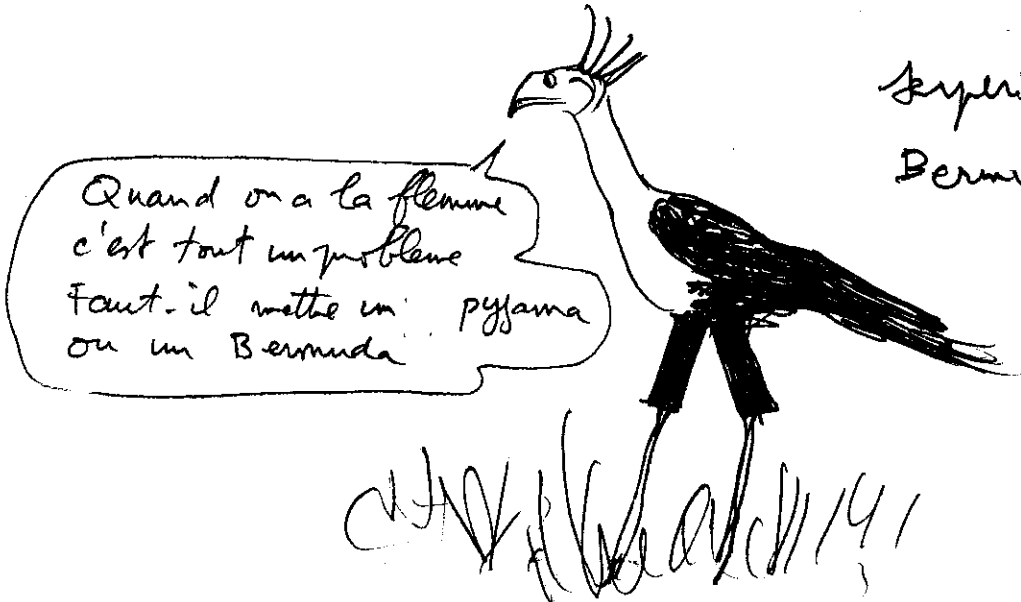 Quand on a la flemme
c'est tout un probleme
Faut-il mettre un pyjama
ou un Bermuda